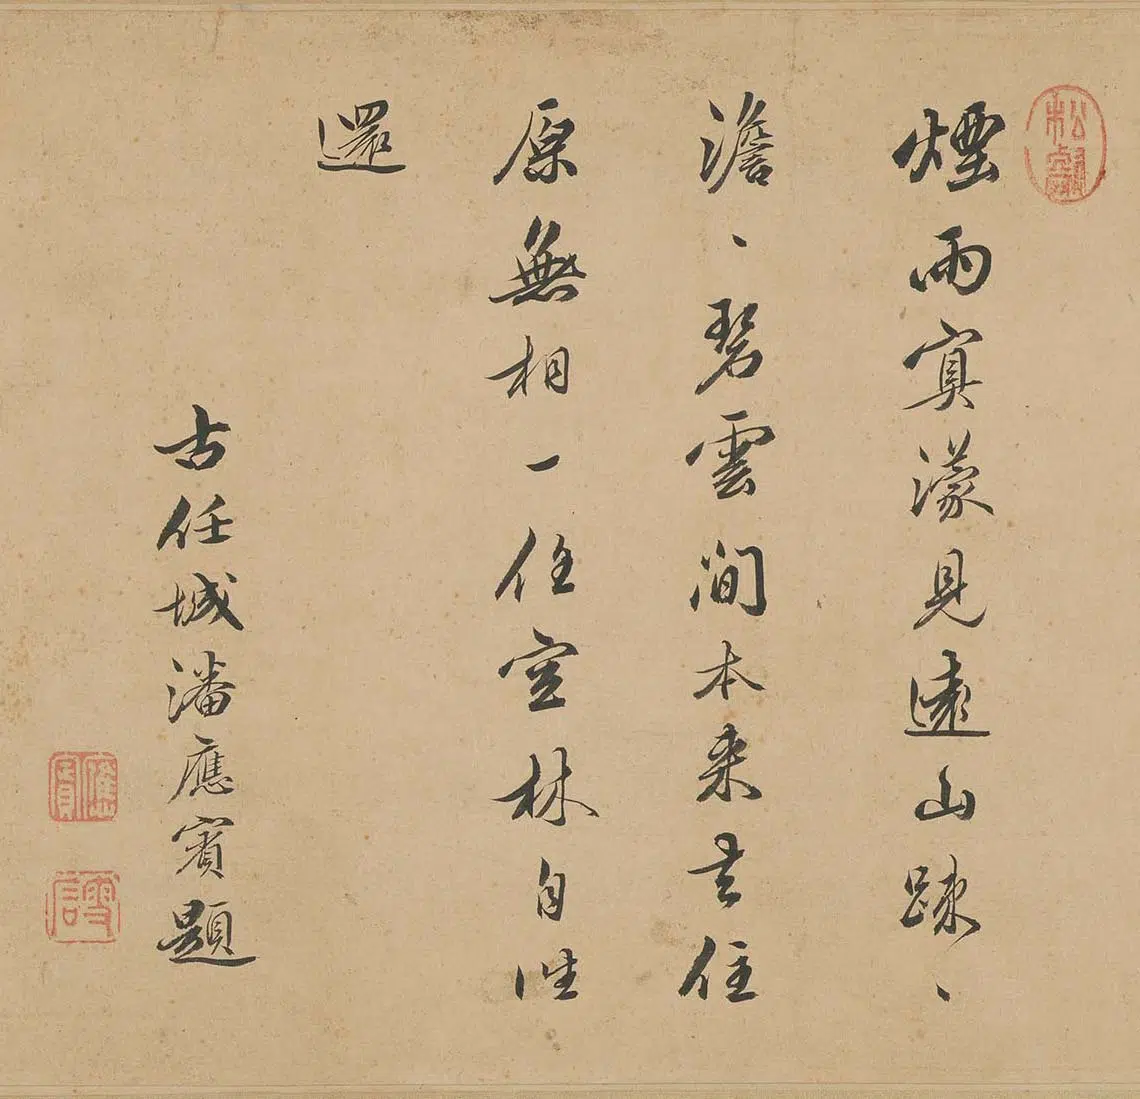 松壑
煙雨㝠濛見遠山踈、
澹、碧雲間本来去住
原無相一任空林自往
還
古任城潘應賓題